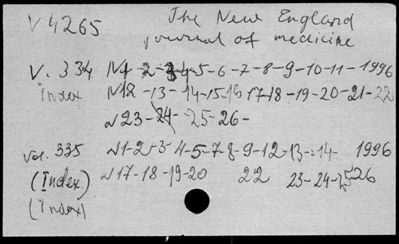 V 4265 The New England
journal of medicine
V. 334 N1-2-3-4-5-6-7-8-9-10-11- 1996
Index N12-13-14-15-16 17-18-19-20-21-22
N23-24-25-26-
vol. 335 N1-2-3-4-5-7-8-9-12-13-14- 1996
(Index) N17-18-19-20 22 23-24-25-26
(Index)